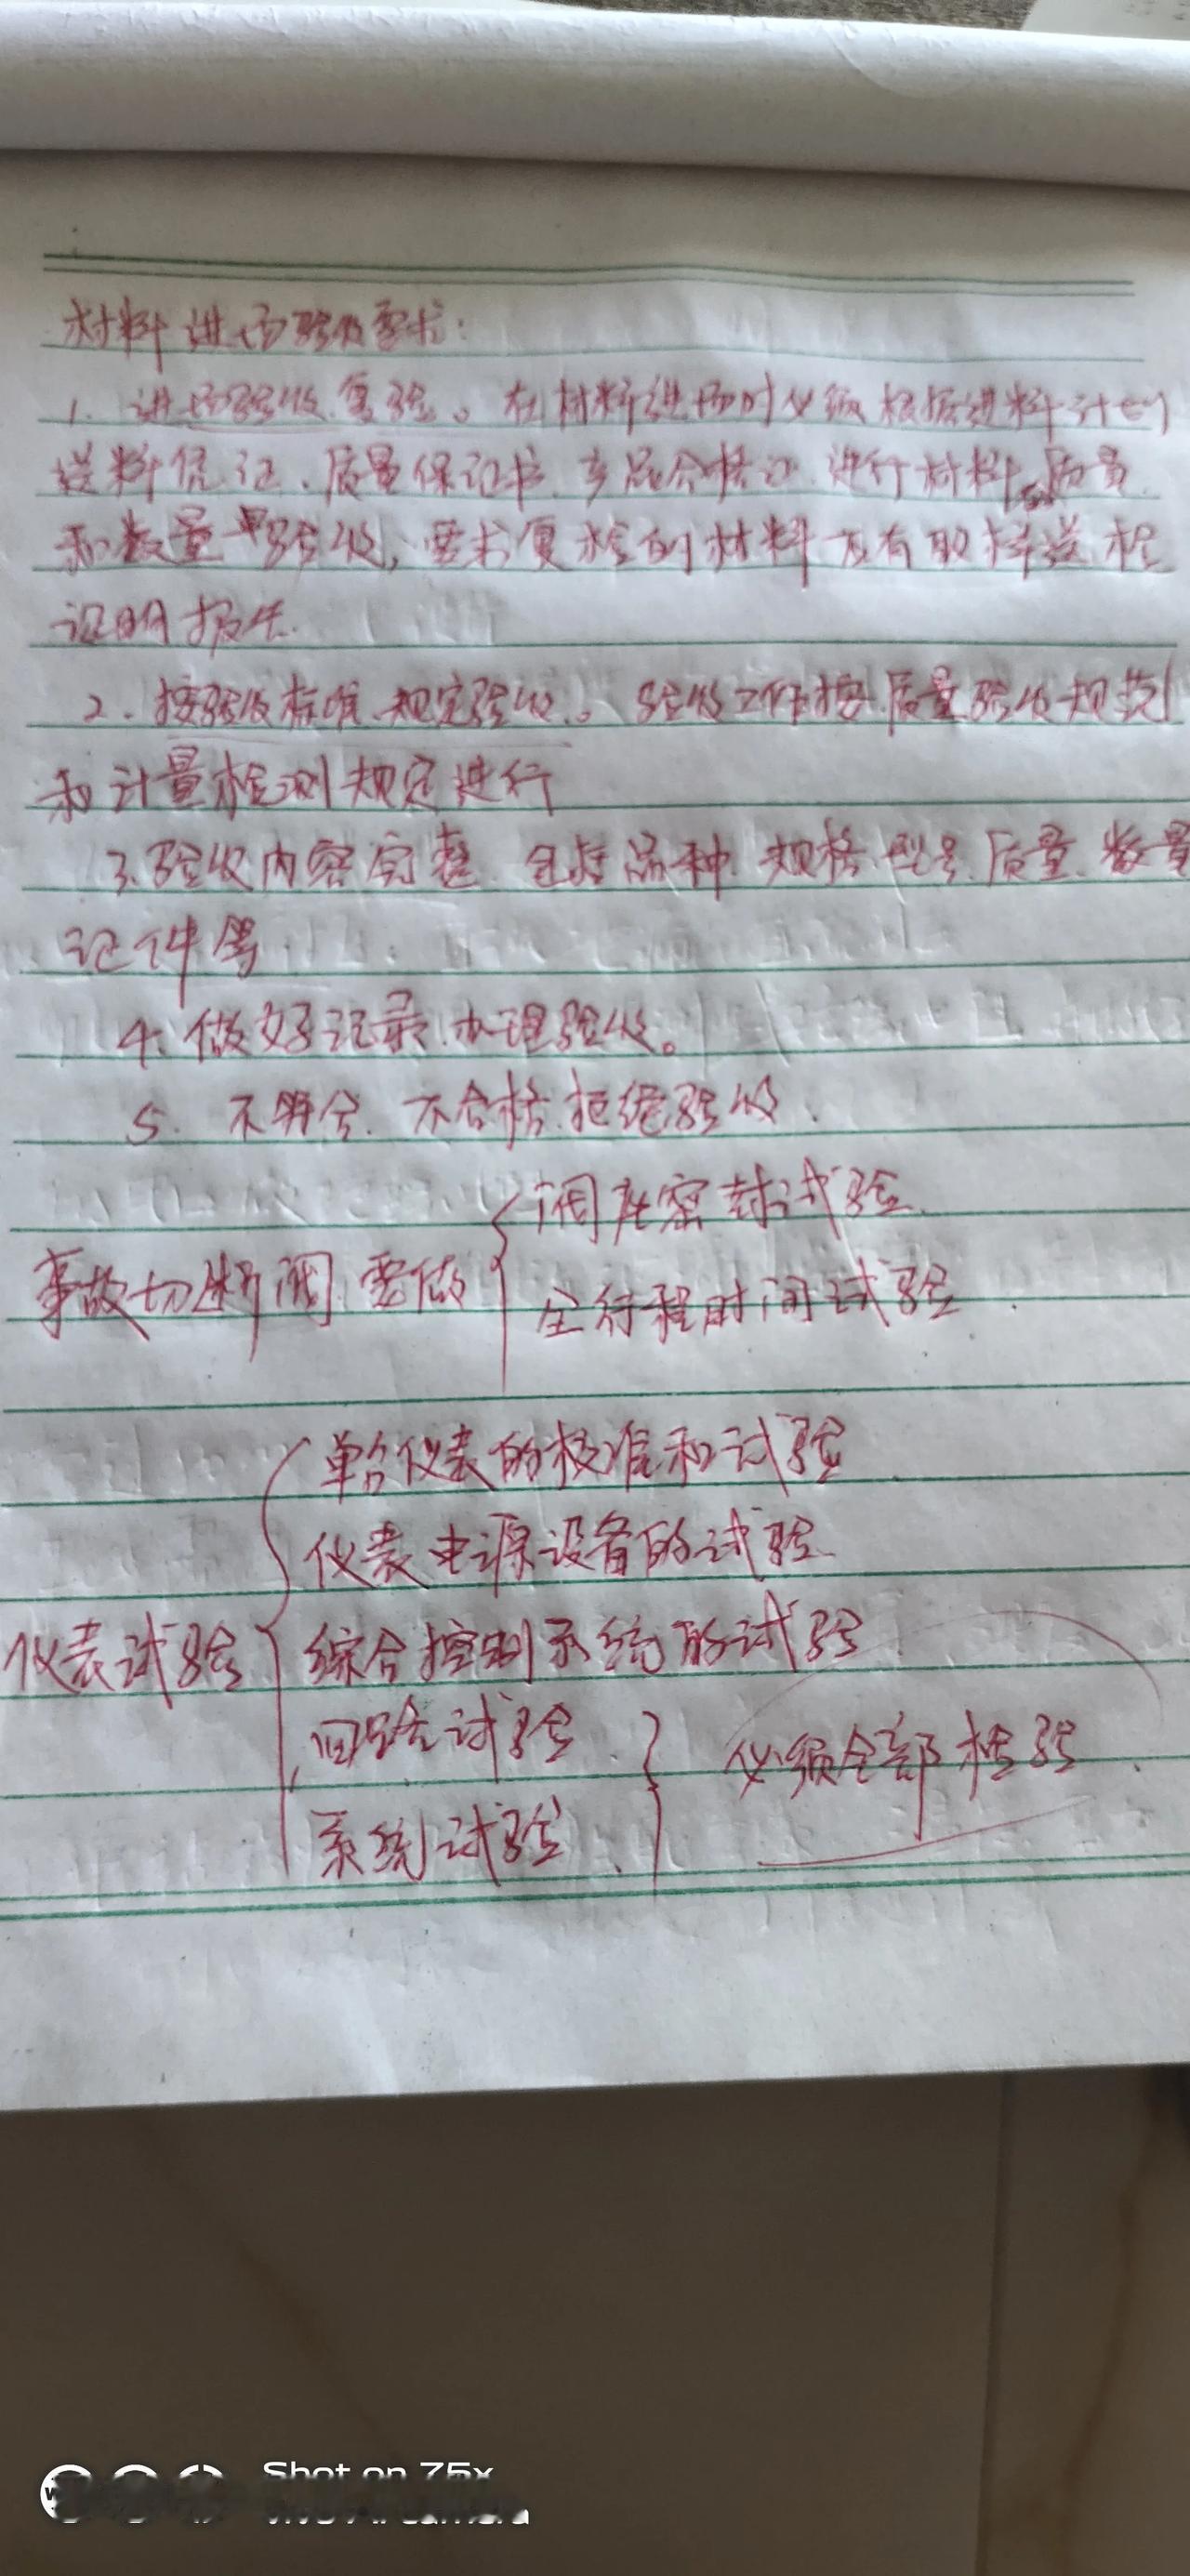 材料进场验收要求:
1. 进场验收、复验。在材料进场时必须根据进料计划
送料凭证、质量保证书、产品合格证、进行材料质量
和数量验收,要求复检的材料应有取样送检
证明报告.
2. 按验收标准、规定验收。验收工作按质量验收规范
和计量检测规定进行
3. 验收内容完整、包括品种、规格、型号、质量、数量
证件等
4. 做好记录、办理验收。
5. 不符合、不合格、拒绝验收.
阀座密封试验
事故切断阀、要做
全行程时间试验
单台仪表的校准和试验
仪表电源设备的试验
仪表试验
综合控制系统的试验
回路试验
必须全部检验
系统试验
Shot on 75x